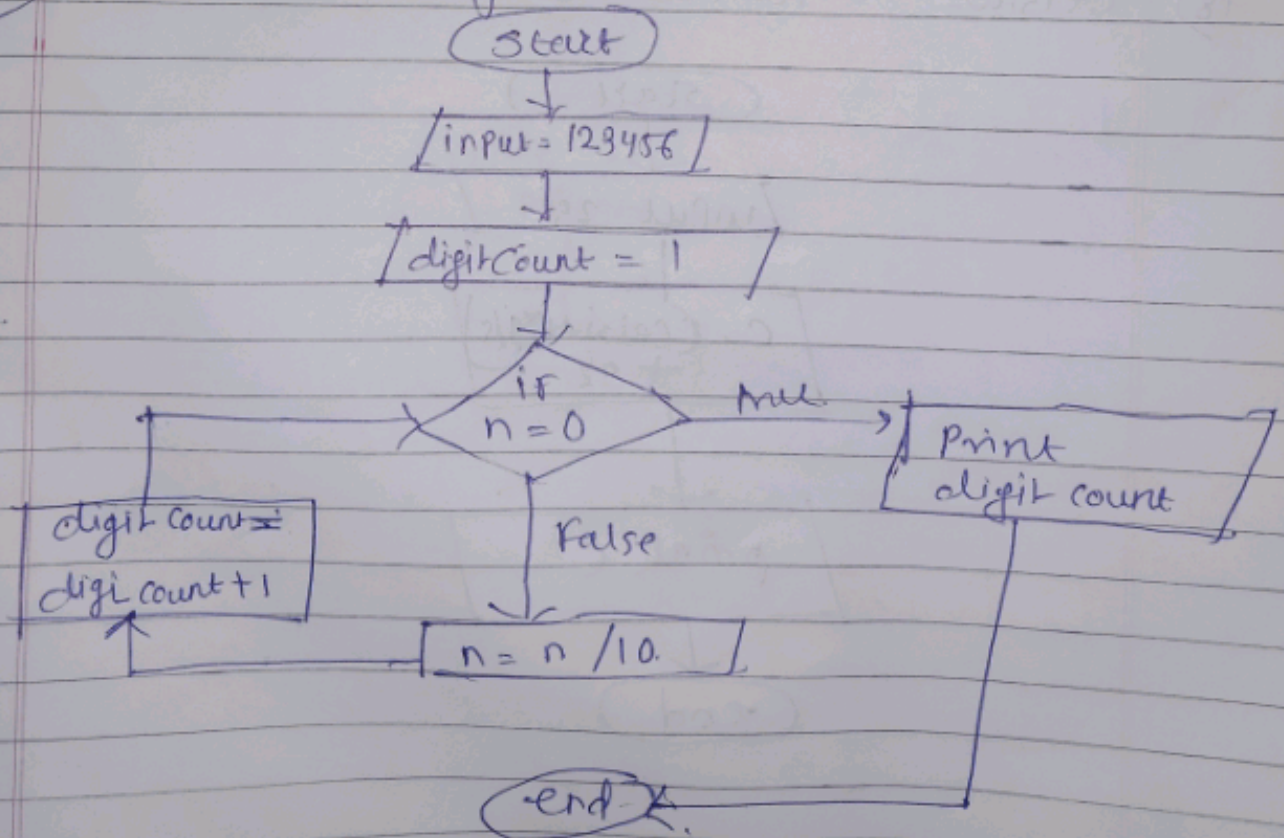 Start
input = 123456
digitCount = 1
is
n = 0
True
Print
digit count
False
digit count =
digi count + 1
n = n / 10.
end